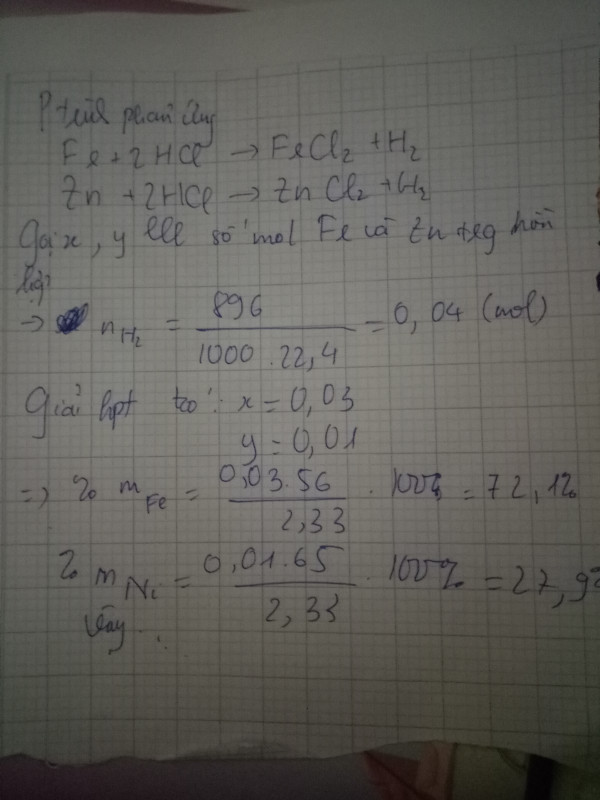 Ptrình phản ứng
Fe + 2HCl → FeCl2 + H2
Zn + 2HCl → ZnCl2 + H2
Gọi x, y lll số mol Fe và Zn trg hỗn
hợp
→ nH2 = 896 / 1000 . 22,4 = 0,04 (mol)
Giải hpt tco': x = 0,03
y = 0,01
=> % mFe = 0,03.56 / 2,33 . 100% = 72,1%
% mNi = 0,01.65 / 2,33 . 100% = 27,9%
Vậy..